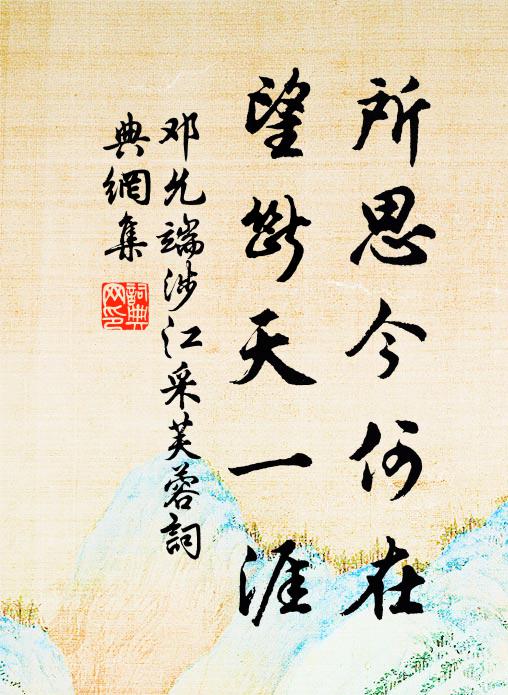 所思今何在
望斷天一涯
邓允端涉江采芙蓉詞
典網集
詞典網印